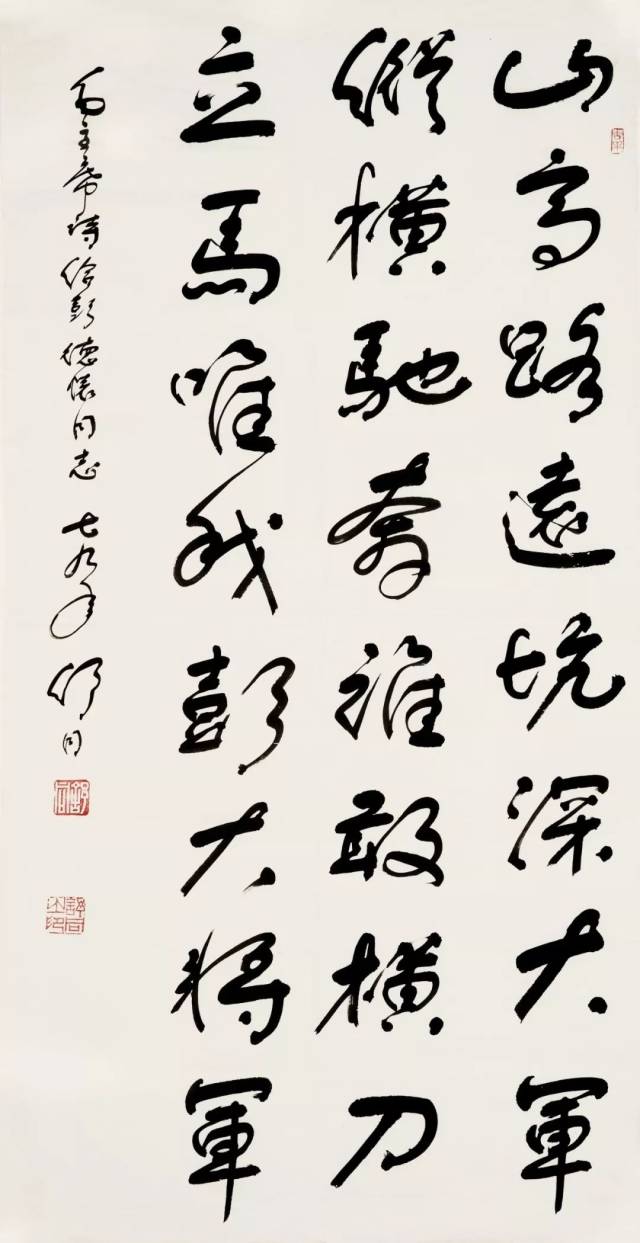 山高路遠坑深大軍
縱橫馳奔誰敢橫刀
立馬唯我彭大將軍
毛主席詩給彭德懷同志 七九年 舒同
舒同